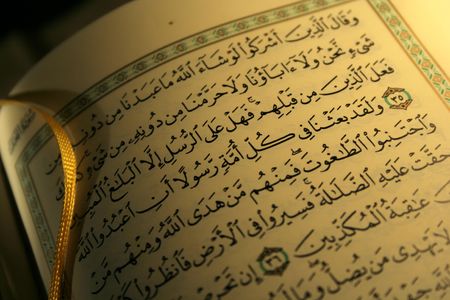 وَقَالَ ٱلَّذِينَ أَشْرَكُوا۟ لَوْ شَآءَ ٱللَّهُ مَا عَبَدْنَا مِن دُونِهِ
شَىْءٍ نَّحْنُ وَلَآ ءَابَآؤُنَا وَلَا حَرَّمْنَا مِن دُونِهِۦ مِن شَىْءٍ
فَعَلَ ٱلَّذِينَ مِن قَبْلِهِمْ ۚ فَهَلْ عَلَى ٱلرُّسُلِ إِلَّا ٱلْبَلَٰغُ ٱلْمُبِينُ
٣٥ وَلَقَدْ بَعَثْنَا فِى كُلِّ أُمَّةٍ رَّسُولًا أَنِ ٱعْبُدُوا۟ ٱللَّهَ
وَٱجْتَنِبُوا۟ ٱلطَّٰغُوتَ ۖ فَمِنْهُم مَّنْ هَدَى ٱللَّهُ وَمِنْهُم مَّنْ
حَقَّتْ عَلَيْهِ ٱلضَّلَٰلَةُ ۚ فَسِيرُوا۟ فِى ٱلْأَرْضِ فَٱنظُرُوا۟
عَٰقِبَةُ ٱلْمُكَذِّبِينَ ٣٦ إِن تَحْرِ
لَا يَهْدِى مَن يُضِلُّ ۖ وَمَا